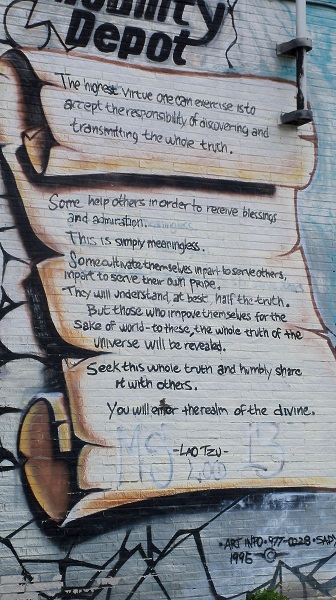 Mobility
Depot
The highest virtue one can exercise is to
accept the responsibility of discovering and
transmitting the whole truth.
Some help others in order to receive blessings
and admiration.
This is simply meaningless.
Some cultivate themselves in part to serve others,
in part to serve their own pride.
They will understand, at best, half the truth.
But those who improve themselves for the
sake of world-to these, the whole truth of the
universe will be revealed.
Seek this whole truth and humbly share
it with others.
You will enter the realm of the divine.
MS 13
-LAO TZU-
LOO
• ART INFO • 977-0228 •
1995 ©